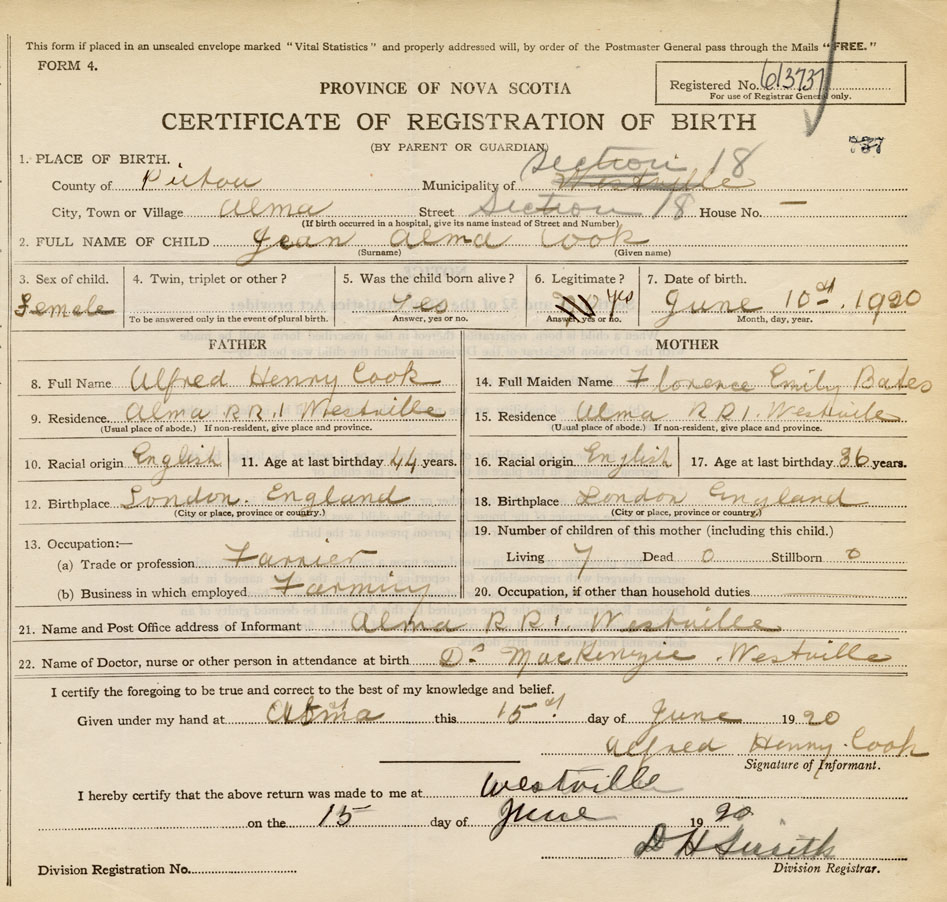 This form if placed in an unsealed envelope marked "Vital Statistics" and properly addressed will, by order of the Postmaster General pass through the Mails "FREE."
FORM 4.
Registered No. 613737
For use of Registrar General only.
PROVINCE OF NOVA SCOTIA
CERTIFICATE OF REGISTRATION OF BIRTH
(BY PARENT OR GUARDIAN)
737
1. PLACE OF BIRTH. Section 18
County of Pictou Municipality of Westville
City, Town or Village Alma Street Section 18 House No. —
(If birth occurred in a hospital, give its name instead of Street and Number)
2. FULL NAME OF CHILD Jean Alma Cook
(Surname) (Given name)
3. Sex of child. 4. Twin, triplet or other? 5. Was the child born alive? 6. Legitimate? 7. Date of birth.
Female Yes No yes June 10th. 1920
To be answered only in the event of plural birth. Answer, yes or no. Answer, yes or no. Month, day, year.
FATHER
8. Full Name Alfred Henry Cook
9. Residence Alma R R. 1 Westville
(Usual place of abode.) If non-resident, give place and province.
10. Racial origin English 11. Age at last birthday 44 years.
12. Birthplace London. England
(City or place, province or country.)
13. Occupation:—
(a) Trade or profession Farrier
(b) Business in which employed Farming
MOTHER
14. Full Maiden Name Florence Emily Bates
15. Residence Alma R R 1. Westville
(Usual place of abode.) If non-resident, give place and province.
16. Racial origin English 17. Age at last birthday 36 years.
18. Birthplace London England
(City or place, province or country.)
19. Number of children of this mother (including this child.)
Living 7 Dead 0 Stillborn 0
20. Occupation, if other than household duties
21. Name and Post Office address of Informant Alma R R 1. Westville
22. Name of Doctor, nurse or other person in attendance at birth Dr MacKenzie. Westville
I certify the foregoing to be true and correct to the best of my knowledge and belief.
Given under my hand at Alma this 15th day of June 1920
Alfred Henry Cook
Signature of Informant.
I hereby certify that the above return was made to me at Westville
on the 15 day of June 1920
D H Smith
Division Registrar.
Division Registration No.